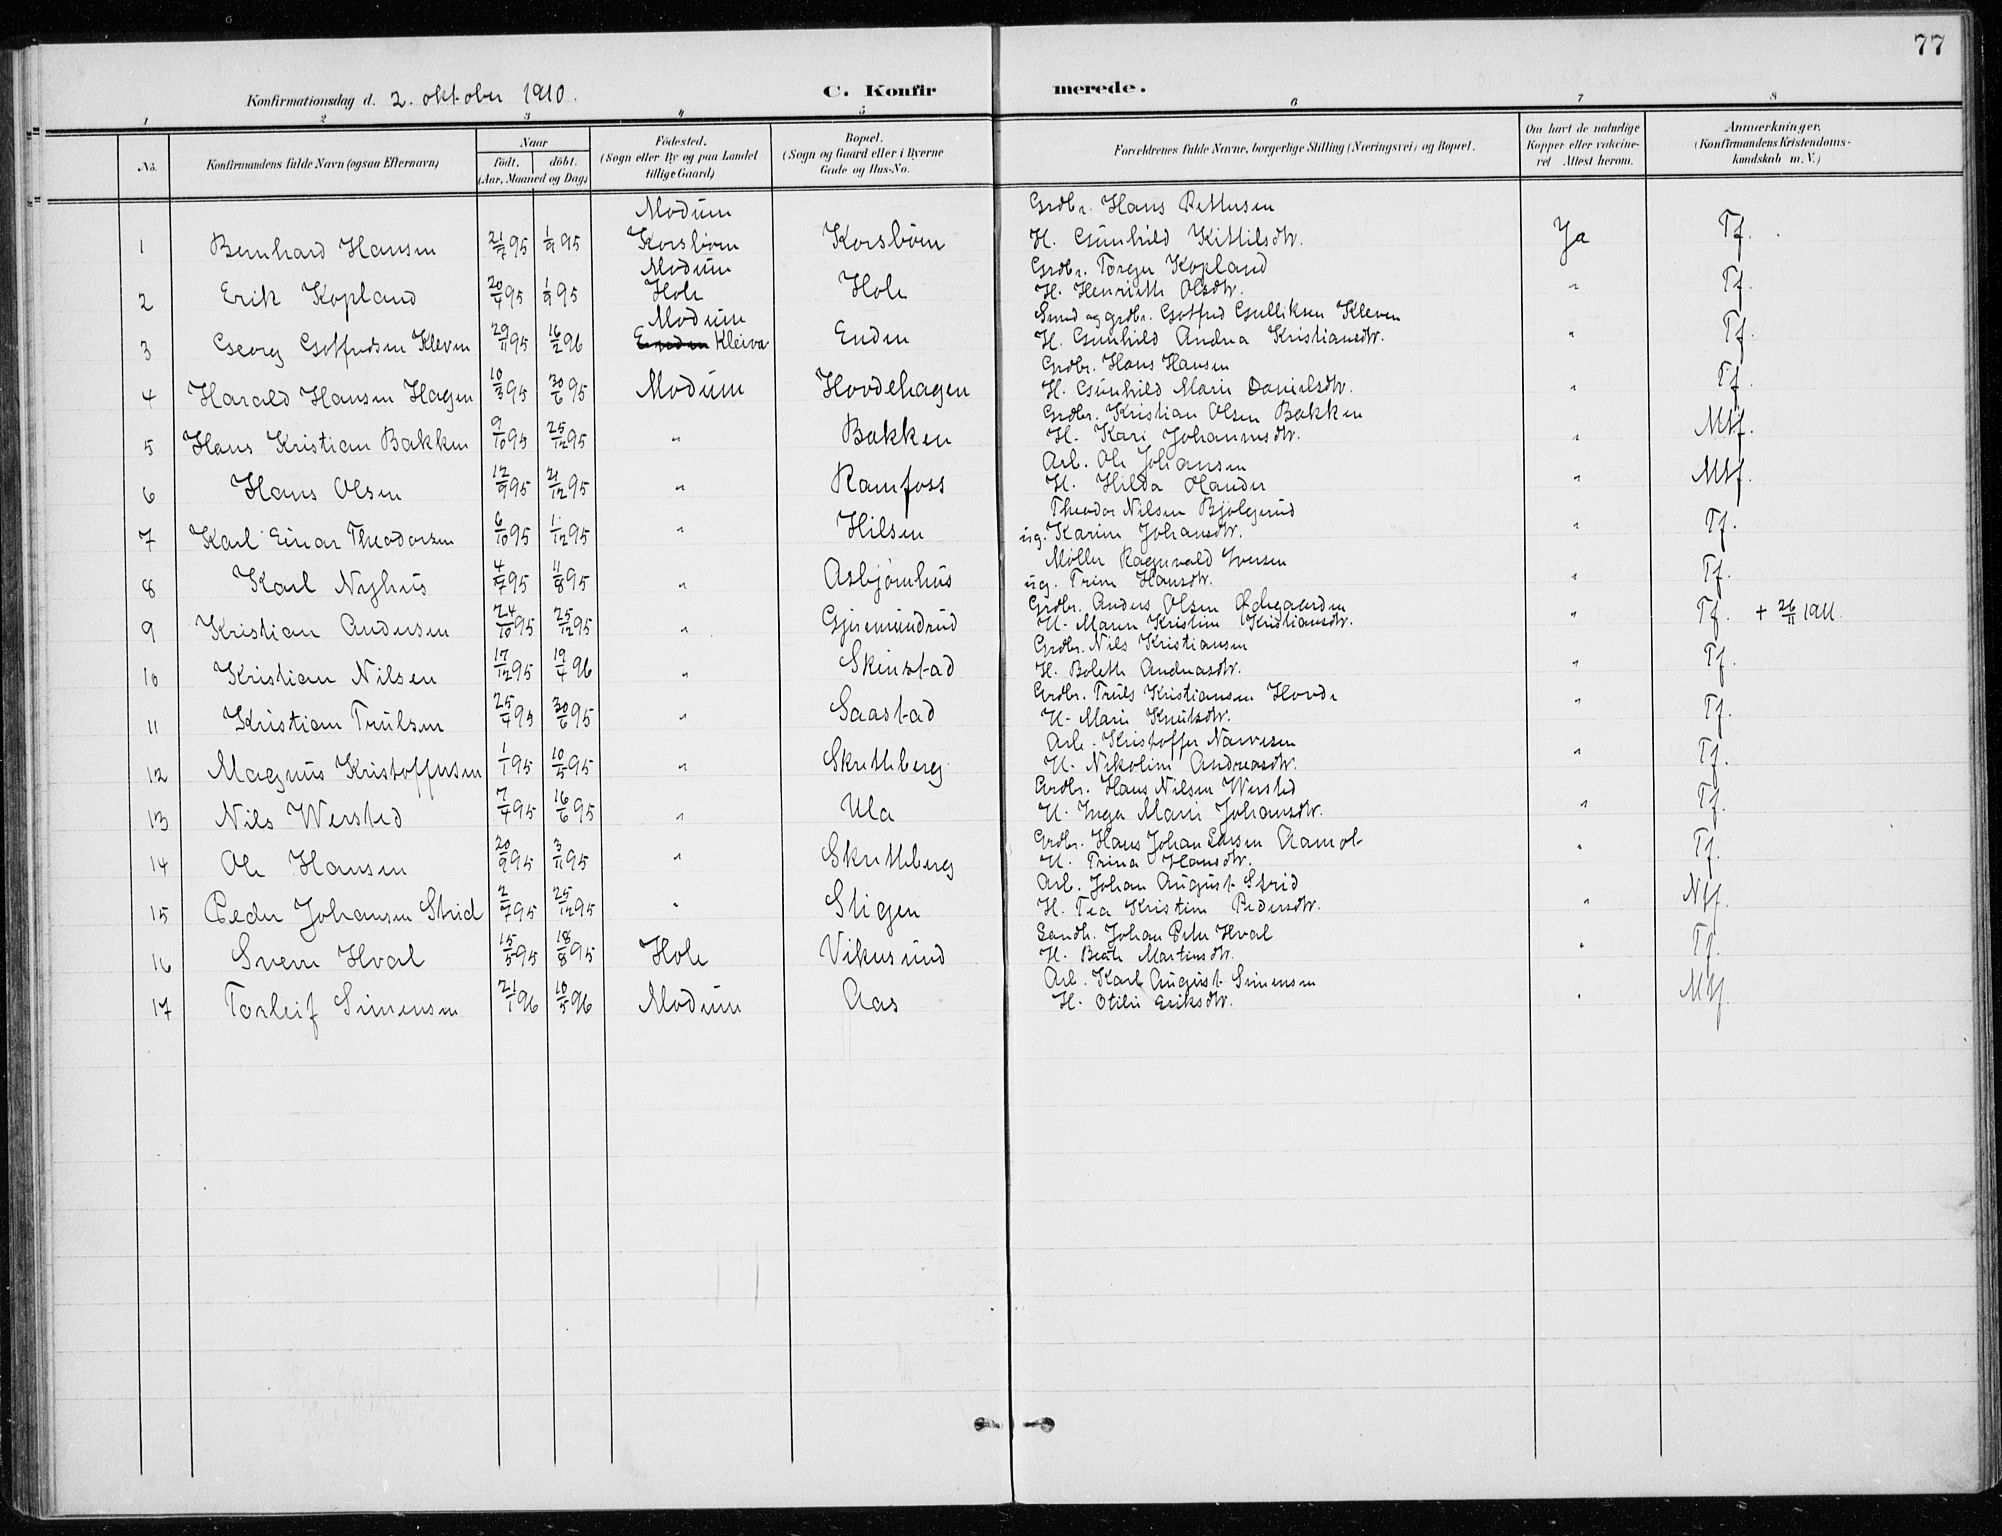 77
Konfirmationsdag d. 2. oktober 1910.
C. Konfirmerede.
1 2 3 4 5 6 7 8
No. Konfirmandens fulde Navn (ogsaa Efternavn) Naar født. døbt. (Aar, Maaned og Dag) Fødested. (Sogn eller By og paa Landet tillige Gaard) Bopæl. (Sogn og Gaard eller i Byerne Gade og Hus-No. Forældrenes fulde Navne, borgerlige Stilling (Næringsvei) og Bopæl. Om havt de naturlige Kopper eller vakcineret Attest herom. Anmærkninger. (Konfirmandens Kristendomskundskab m. V.)
Modum Grdbr. Hans Pettersen
1 Bernhard Hansen 21/7 95 1/9 95 Korsbøen Korsbøen H. Gunhild Kittilsdtr. Ja Tf.
Modum Grdbr. Torger Kopland
2 Erik Kopland 20/4 95 1/9 95 Hole Hole H. Henriette Olsdtr. " Tf.
Modum Smed og grdbr. Gotfred Gulliksen Kleven
3 Georg Gotfredsen Kleven 29/11 95 16/2 96 Kleiva Enden H. Gunhild Andrea Kristiansdtr. " Tf.
Grdbr. Hans Hansen
4 Harald Hansen Hagen 10/3 95 30/6 95 Modum Hovdehagen H. Gunhild Marie Danielsdtr. " Tf.
Grdbr. Kristian Olsen Bakken
5 Hans Kristian Bakken 9/10 95 25/12 95 " Bakken H. Kari Johannesdtr. " Mtf.
Arb. Ole Johansen
6 Hans Olsen 12/9 95 21/12 95 " Ramfoss H. Hilda Olander " Mtf.
Theodor Nilsen Bjølgerud
7 Karl Einar Theodorsen 6/10 95 1/12 95 " Hilsen ug. Karin Johansdtr. " Tf.
Møller Ragnvald Iversen
8 Karl Nyhus 4/7 95 11/8 95 " Asbjørnhus ug. Trine Hansdtr. " Tf.
Grdbr. Anders Olsen Ødegaarden
9 Kristian Andersen 24/10 95 25/12 95 " Gjiremundrud H. Maren Kristine Kristiansdtr. " Tf. + 26/11 1911.
Grdbr. Nils Kristiansen
10 Kristian Nilsen 17/12 95 19/4 96 " Skinstad H. Bolette Andreasdtr. " Tf.
Grdbr. Truls Kristiansen Hovde
11 Kristian Trulsen 25/4 95 30/6 95 " Saastad H. Marie Knutsdtr. " Tf.
Arb. Kristoffer Narvesen
12 Magnus Kristoffersen 1/1 95 10/5 95 " Skretteberg H. Nikoline Andreasdtr. " Tf.
Grdbr. Hans Nilsen Wersted
13 Nils Wersted 7/4 95 16/6 95 " Ula H. Inga Marie Johansdtr. " Tf.
Grdbr. Hans Johan Larsen Aamot
14 Ole Hansen 20/9 95 3/11 95 " Skretteberg H. Trina Hansdtr. " Tf.
Arb. Johan August Strid
15 Peder Johansen Strid 2/7 95 25/12 95 " Stigen H. Tea Kristine Pedersdtr. " Ntf.
Landh. Johan Peter Hval
16 Svern Hval 15/5 95 18/8 95 Hole Vikesund H. Beate Martinsdtr. " Tf.
Arb. Karl August Simensen
17 Torleif Simensen 21/1 96 10/5 96 Modum Aas H. Otilie Eriksdtr. " Mtf.